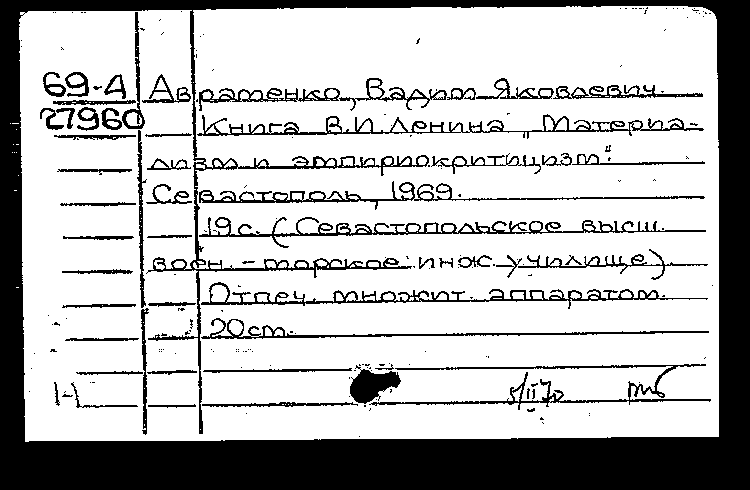 69-4 Авраменко, Вадим Яковлевич.
27960 Книга В.И. Ленина „Материа-
лизм и эмпириокритицизм".
Севастополь, 1969.
19с. (Севастопольское высш.
воен.-морское инж. училище).
Отпеч. множит. аппаратом.
20см.
5/II 70